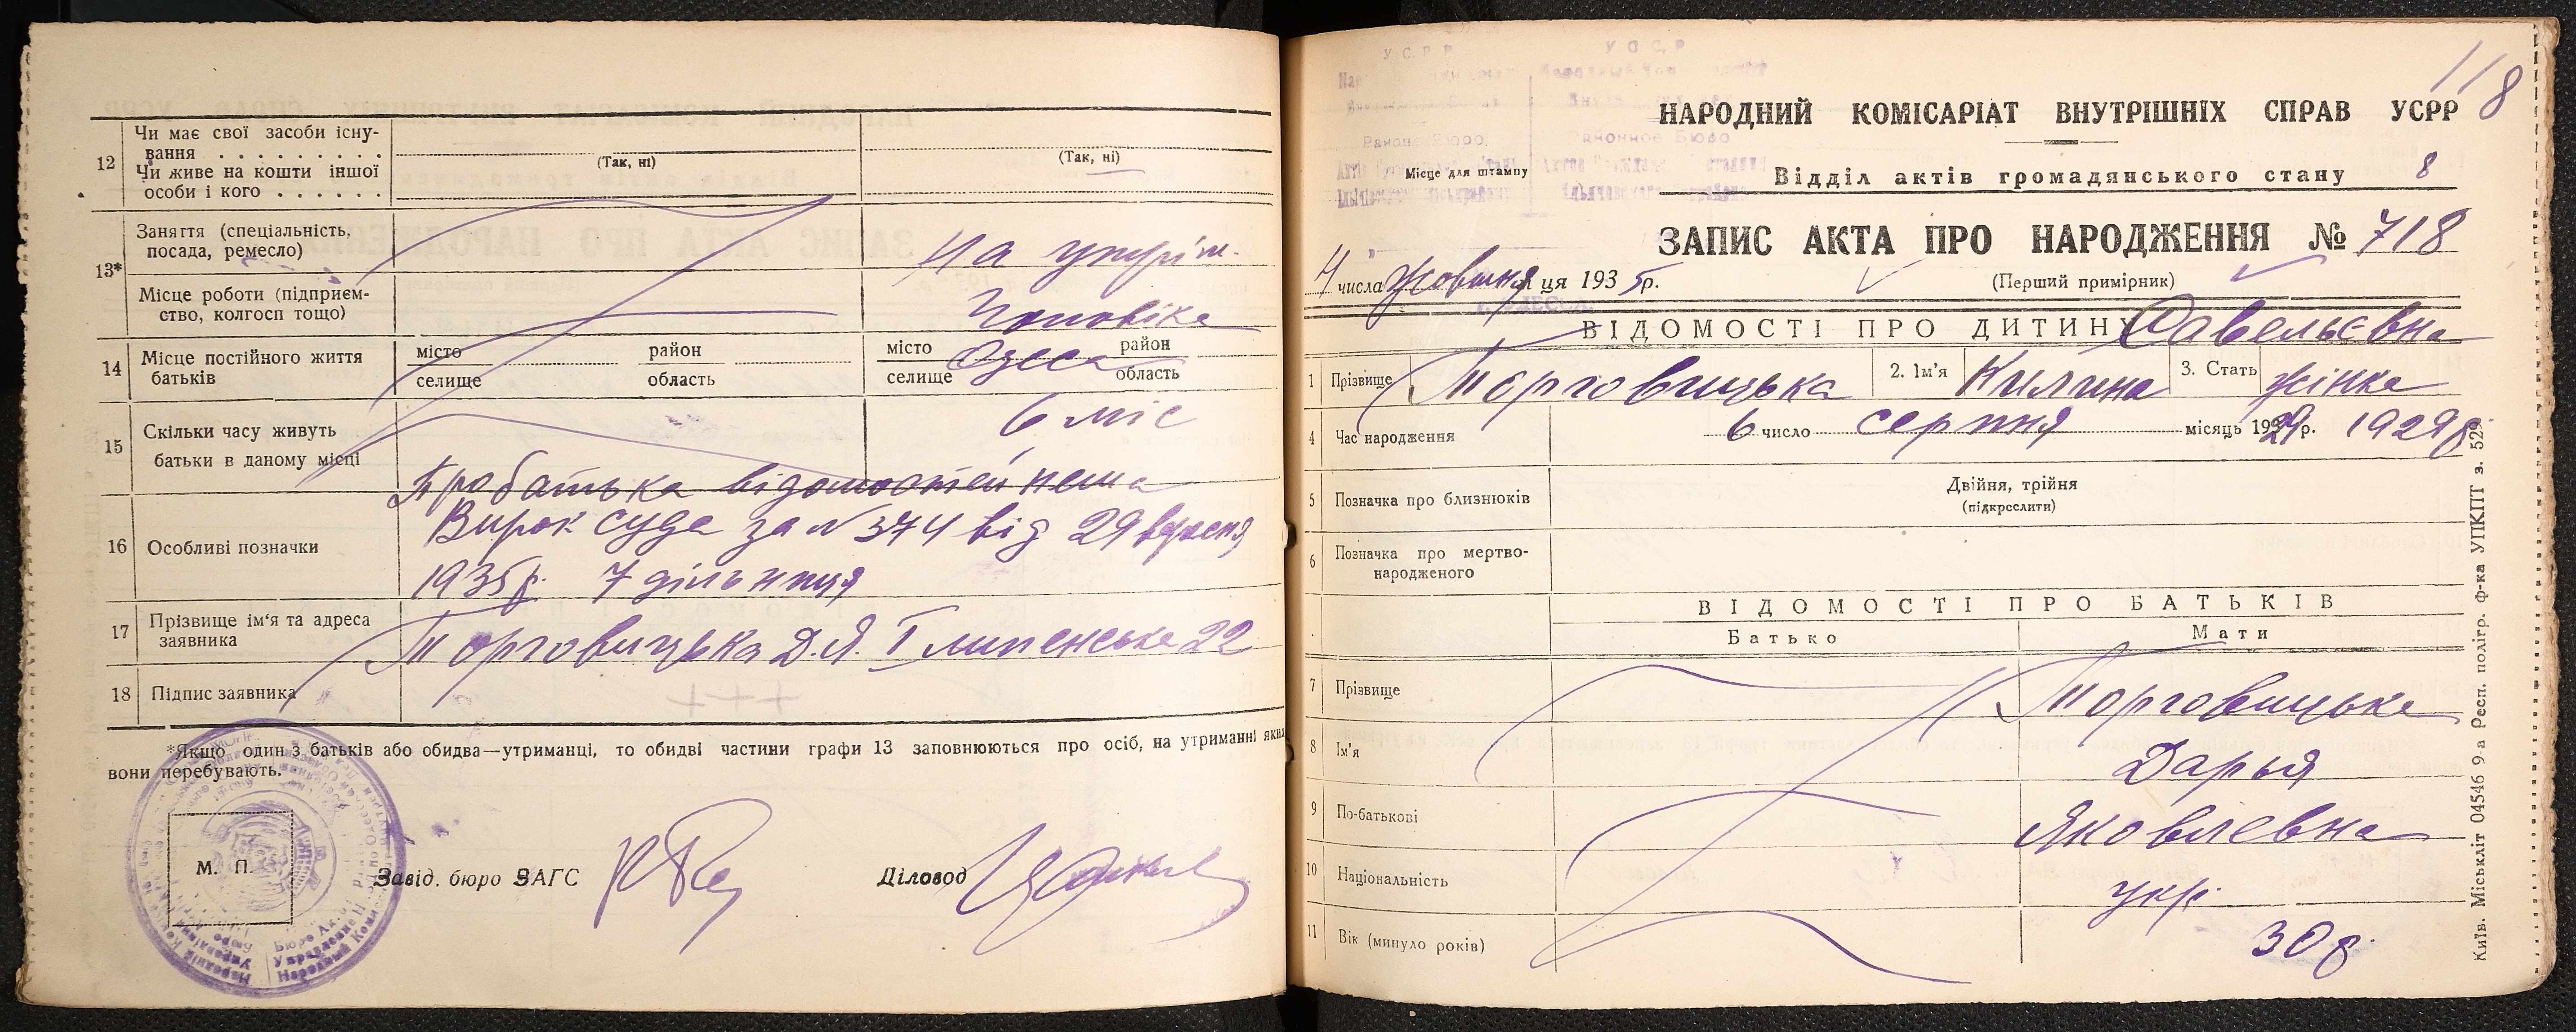 12 Чи має свої засоби існу-
вання . . . . . . . . .
Чи живе на кошти іншої
особи і кого . . . . . .
(Так, ні) (Так, ні)
13* Заняття (спеціальність,
посада, ремесло)
На утрім.
Місце роботи (підприєм-
ство, колгосп тощо)
Чоловіка
14 Місце постійного життя
батьків
місто район місто Одеса район
селище область селище область
15 Скільки часу живуть
батьки в даному місці
6 міс
Про батька відомостей нема
16 Особливі позначки
Вирок суда за N 374 від 29 вересня
1935р. 7 дільниця
17 Прізвище ім'я та адреса
заявника
Торговицька Д.Я.
22
18 Підпис заявника +++
*Якщо один з батьків або обидва—утриманці, то обидві частини графи 13 заповнюються про осіб, на утриманні яких
вони перебувають.
М. П.
Завід. бюро ЗАГС Діловод
118
УСРР УССР
Районне Бюро Районное Бюро
Місце для штампу
НАРОДНИЙ КОМІСАРІАТ ВНУТРІШНІХ СПРАВ УСРР
Відділ актів громадянського стану 8
ЗАПИС АКТА ПРО НАРОДЖЕННЯ № 718
4 числа жовтня м-ця 1935р. (Перший примірник)
ВІДОМОСТІ ПРО ДИТИНУ Савельєвна
1 Прізвище Торговицька 2. Ім'я Килина 3. Стать жінка
4 Час народження 6 число серпня місяць 1929 р. 1929р
5 Позначка про близнюків Двійня, трійня
(підкреслити)
6 Позначка про мертво-
народженого
ВІДОМОСТІ ПРО БАТЬКІВ
Батько Мати
7 Прізвище Торговицька
8 Ім'я Дарья
9 По-батькові Яковлевна
10 Національність укр.
11 Вік (минуло років) 30р.
Київ. Міськліт 04546 9-а Респ. полігр. ф-ка УПКПТ з. 529.